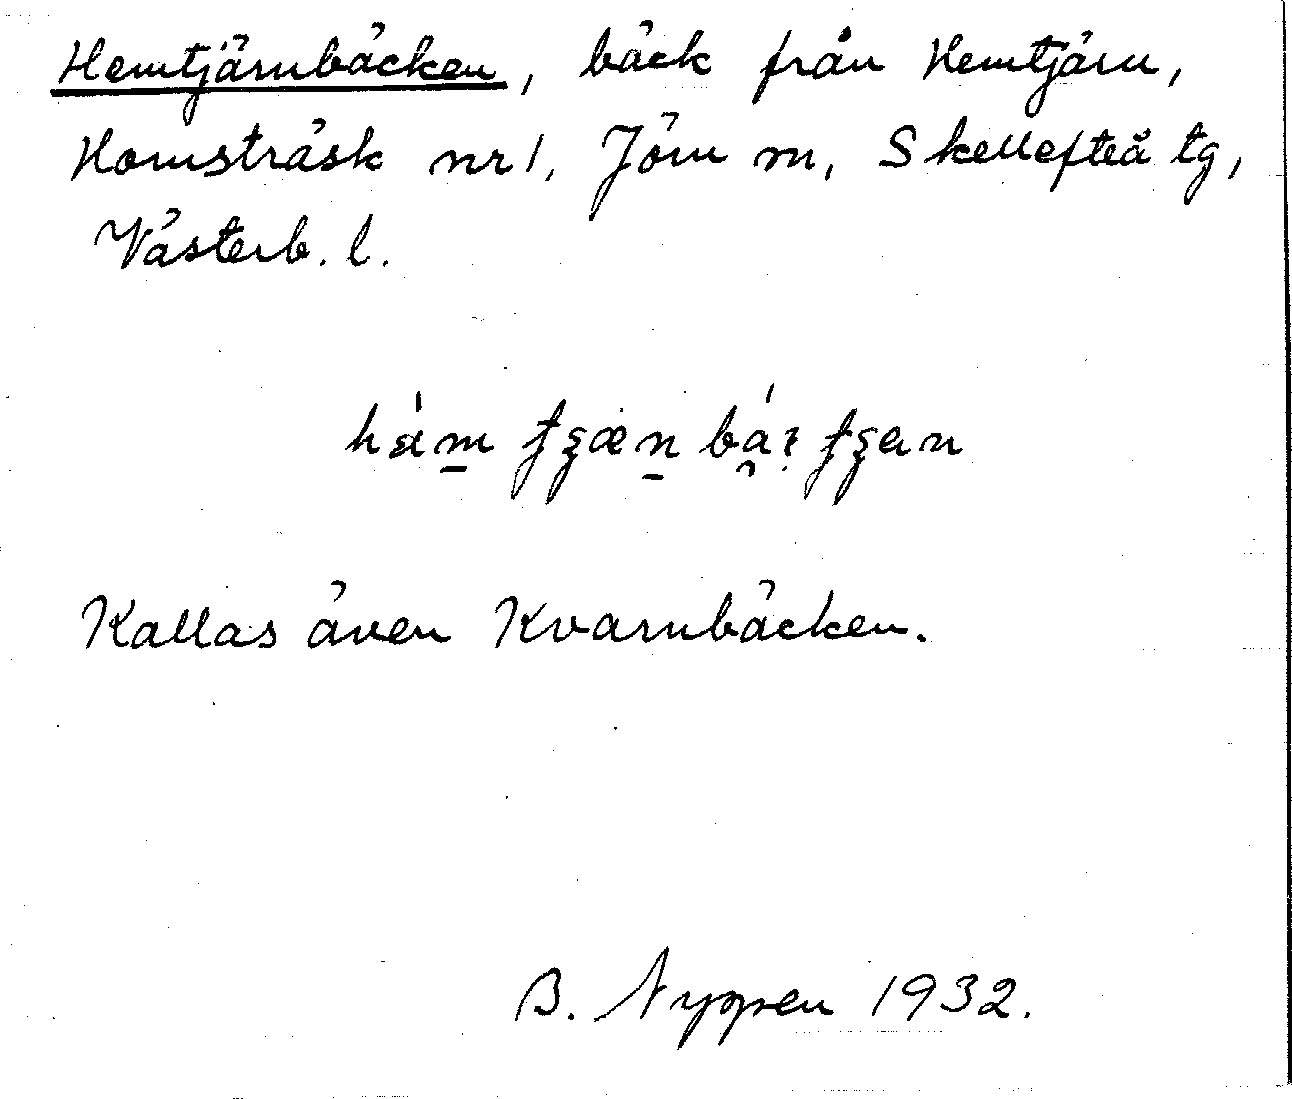 Hemtjärnbäcken, bäck från Hemtjärn,
Homsträsk nr 1, Jörn sn, Skellefteå tg,
Västerb. l.
Kallas även Kvarnbäcken.
B. 1932.